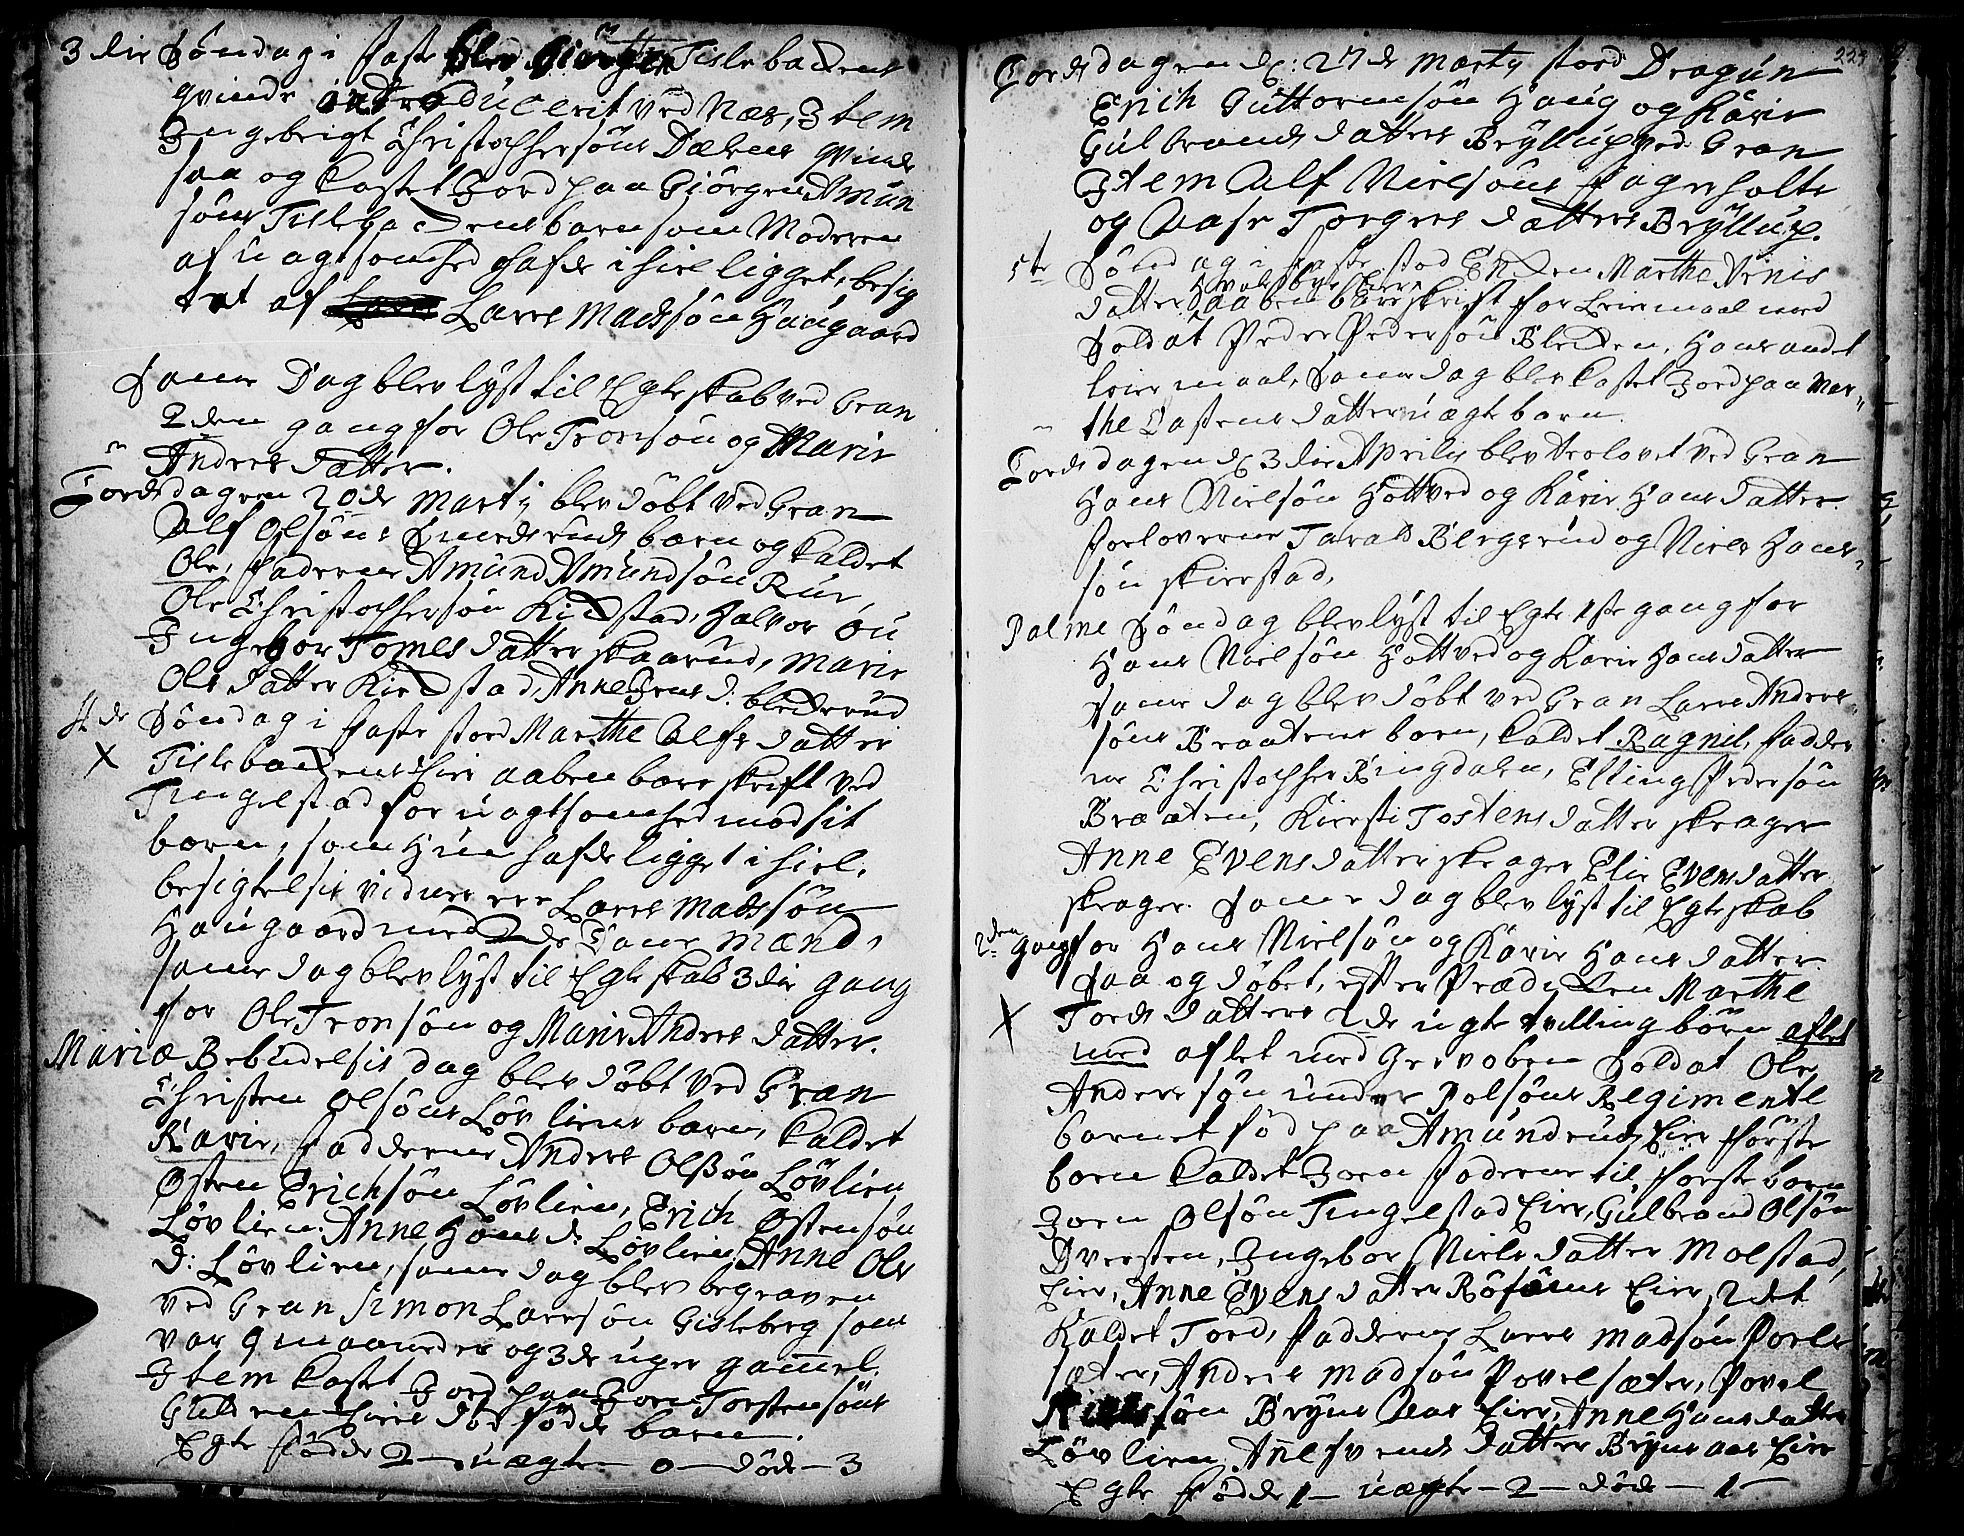 3die Søndag i faste blev Giørgen Tislebachens
qvinde introduceret ved Næs, Item
Ingebrigt Christophersøns Dælens qvinde
saa og kastet Jord paa Giörgen Amun
søns Tislebachens barn som Moderen
af uagtsomhed hafde ihiel ligget, besig
tet af Lars Madssøn Haugaard
Same Dag blev lyst til Egteskab ved Gran
2den gang for Ole Tronsøn og Marie
Anders datter.
Torsdagen 20de Martij blev døbt ved Gran
Alf Olsøns Smedsruds barn og kaldet
Ole, fadderne Amund Amundsøn Rue,
Ole Christophersøn Kiedstad, Halvor
Ingebor Tomes datter Skaarud, Marie
Ols datter Kiedstad, Anne Jens d. blederud
4de Søndag i faste stod Marthe Alfs datter
X Tislebachens Eier aabenbare skrift ved
Tingelstad for uagtsomhed mod sit
barn, som Hun hafde ligget i hiel,
besigtelsis vidner ere Lars Madssøn
Haugaard med 2de Dane Mænd,
same dag blev lyst til Egteskab 3die gang
for Ole Tronsøn og Marie Anders datter.
Mariæ Bebudelsis dag blev døbt ved Gran
Christen Olsøns Løvliens barn, kaldet
Karie, fadderne Anders Olssøn Løvlien
Østen Erichsøn Løvlien, Erich Østensøn
Løvlien, Anne Hans d: Løvlien Anne Ols
d: Løvlien, same dag blev begraven
ved Gran Simon Larssøn Gisleberg som
var 9 maaneder og 3de uger gammel.
Item kastet Jord paa Joen Torstensøns
Gulden Eiers død fødde barn.
Egte fødde 2 – uægte – 0 – døde – 3
223
Torsdagen d: 27de Martij stod Dragun
Erich Guttormsøn Haug og Karie
Gulbrands datters Bryllup ved Gran
Item Alf Nielsøns Fagerholts
og Aase Torgers datters Bryllup.
5te Søndag i faste stod Enchen Marthe
datter aabenbare skrift for Leiermaal med
Soldat Peder Pedersøn Blechen, Hans andet
leiermaal, Same dag blev kastet Jord paa Mar-
the Tostens datters uægte barn
Torsdagen d: 3die Aprilis blev trolovet ved Gran
Hans Nielsøn Hottved og Karie Hans datter
forloverne Tarald Bergerud og Niels Hans-
søn Skierstad,
Palme Søndag blev lyst til Egte 1ste gang for
Hans Nielsøn Hottved og Karie Hans datter
Same dag blev døbt ved Gran Lars Anders-
søns Braatens barn, kaldet Ragnil, fadder
ne Christopher Ringdalen, Elling Pedersøn
Braaten, Kiersti Tostens datter Skrager
Anne Evens datter Skrager Elie Evens datter
Skrager. Same dag blev lyst til Egteskab
2den gang for Hans Nielsøn og Karie Hans datter
X Saa og døbet, efter Prædichen Marthe
Tords datters 2de uegte tvilling børn aflet
med aflet med Grevoben Soldat Ole
Anderssøn under Polsøns Regimente
barnet fød paa Amundrud Eier første
barn kaldet Joen fadderne til første barn
Joen Olsøn Tingelstad Eier, Gulbrand Olsøn
Dversten, Ingebor Niels datter Molstad,
Eier, Anne Evens datter Røsøens Eier, 2det
kaldet Tord, fadderne Lars Madsøn Povels
sæter, Anders Madsøn Povelsæter, Povel
søn Bryns Aas Eier, Anne Hans datter
Løvlien Ane Svends datter Bryns aas Eier
Egte fødde 1 – uægte – 2 – døde – 1 –